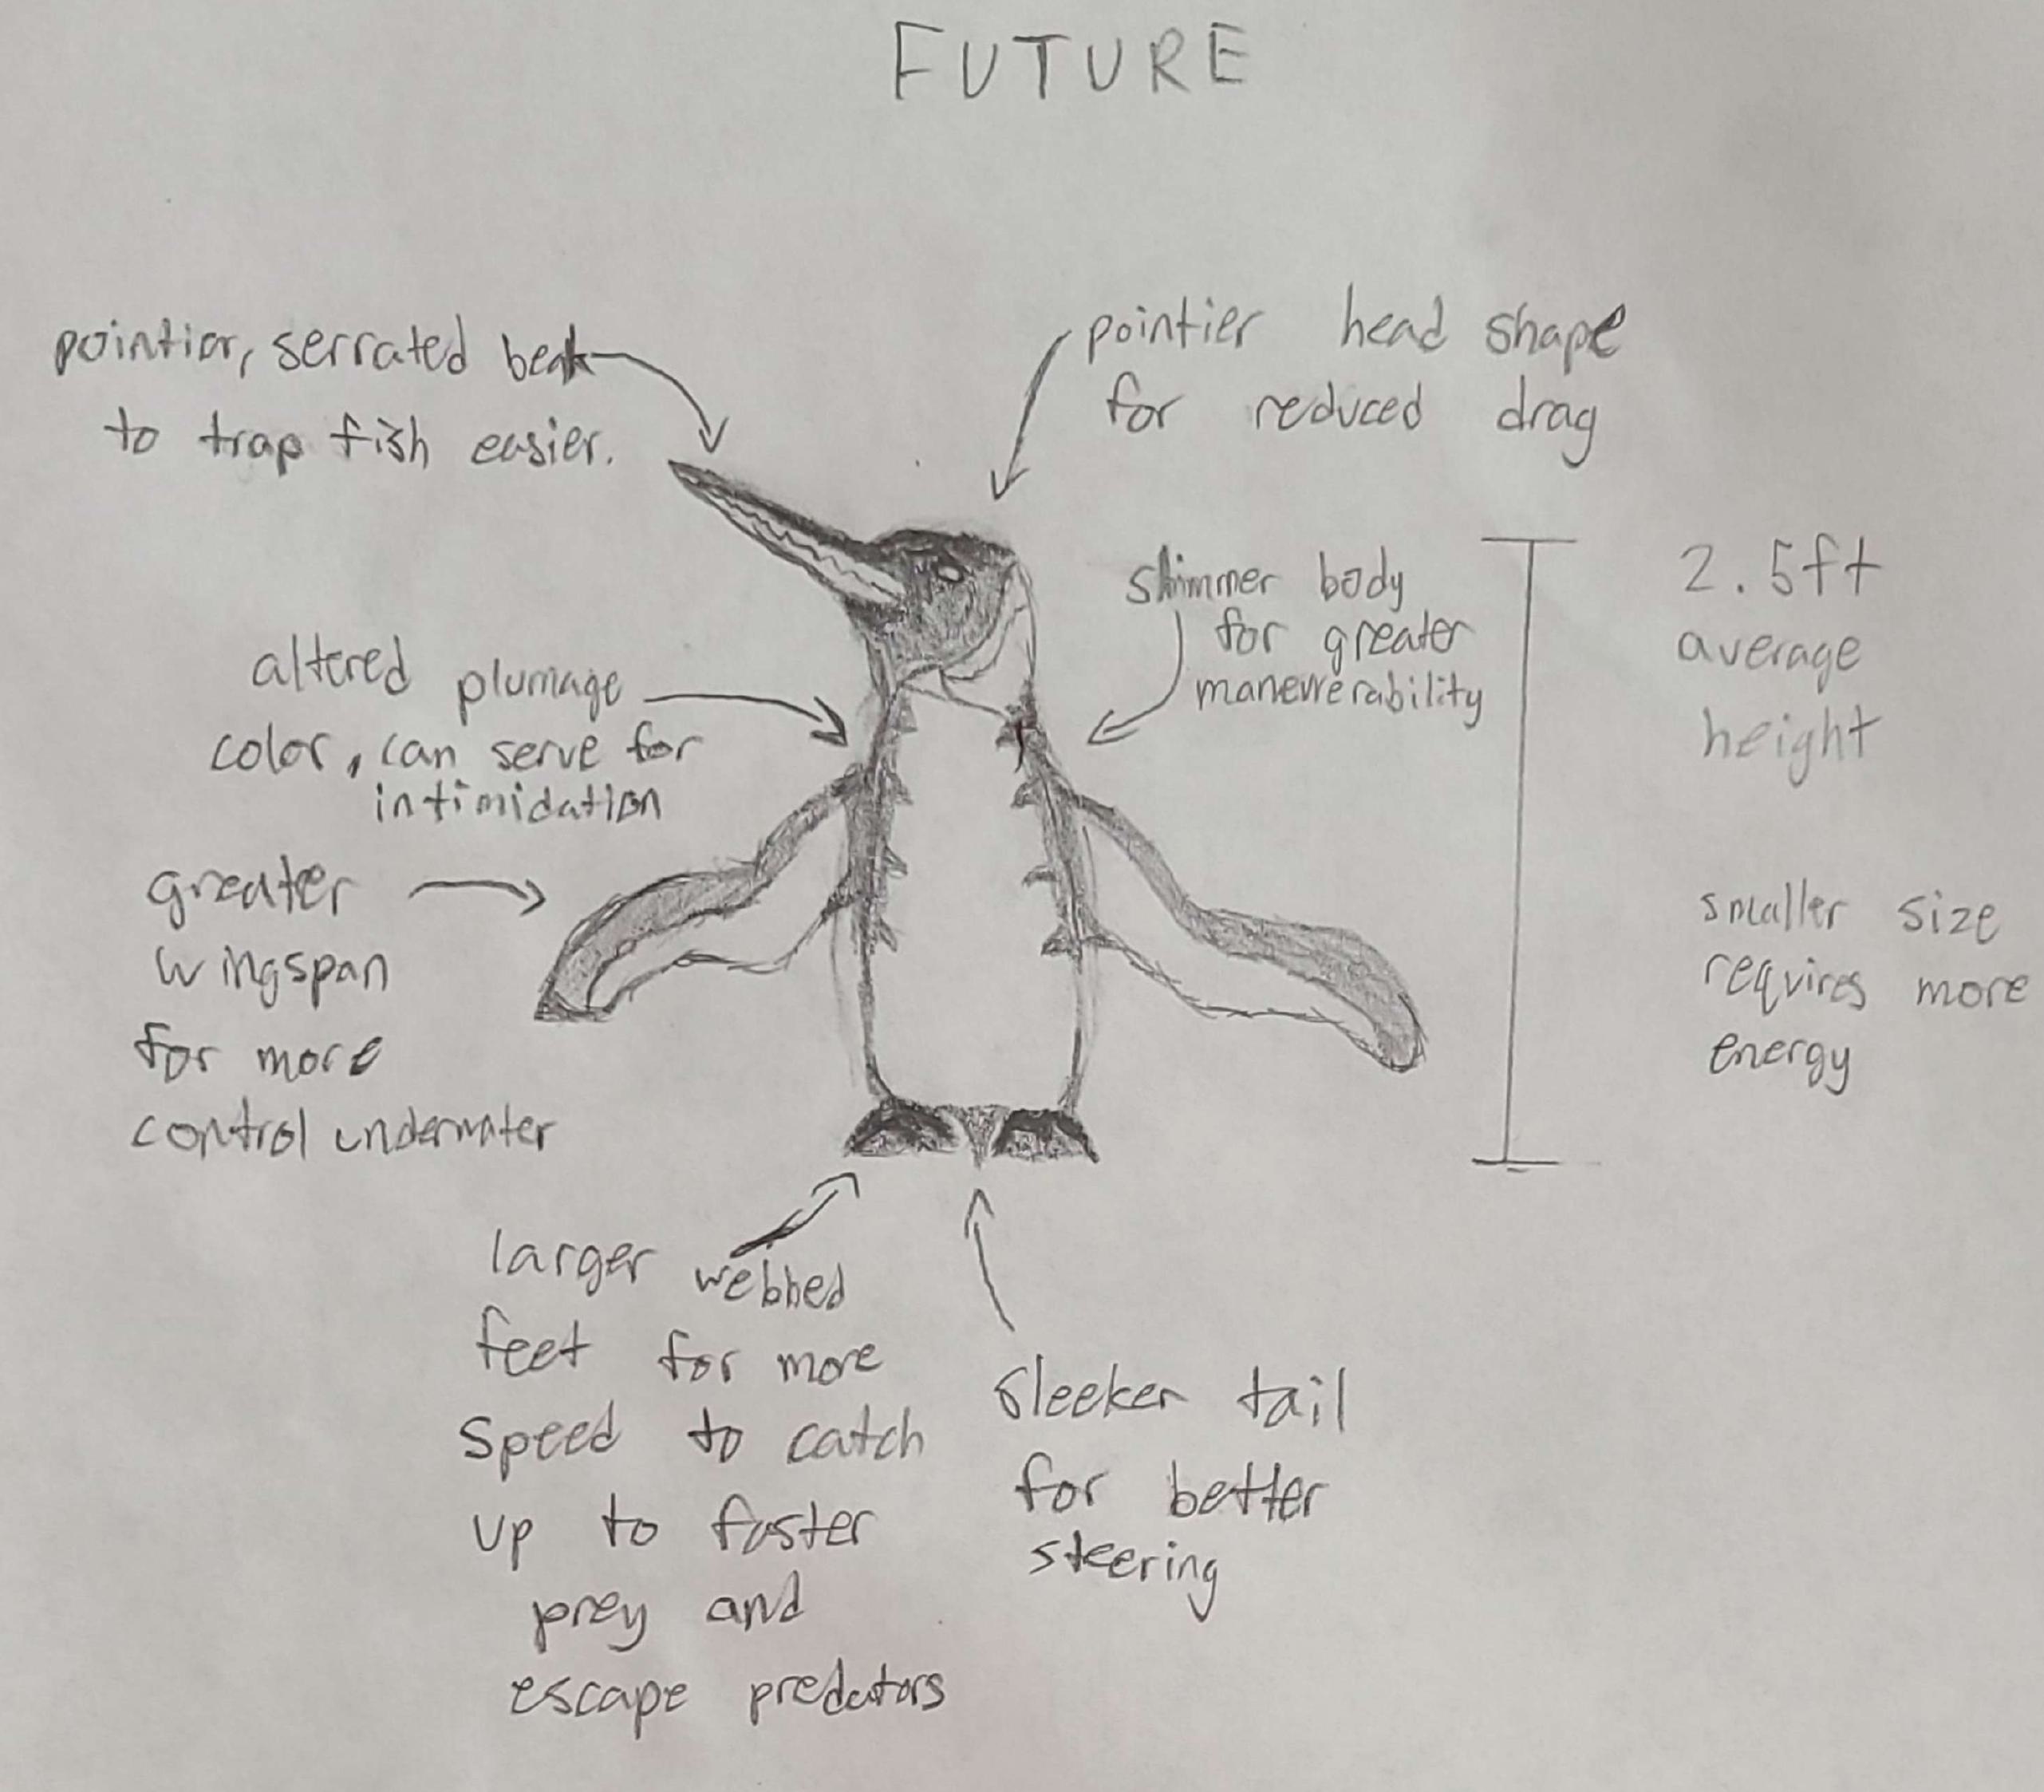 FUTURE
pointier, serrated beak
to trap fish easier.
pointier head shape
for reduced drag
slimmer body
for greater
maneuverability
2.5ft
average
height
altered plumage
color, can serve for
intimidation
greater
wingspan
for more
control underwater
smaller size
requires more
energy
larger webbed
feet for more
speed to catch
up to faster
prey and
escape predators
sleeker tail
for better
steering